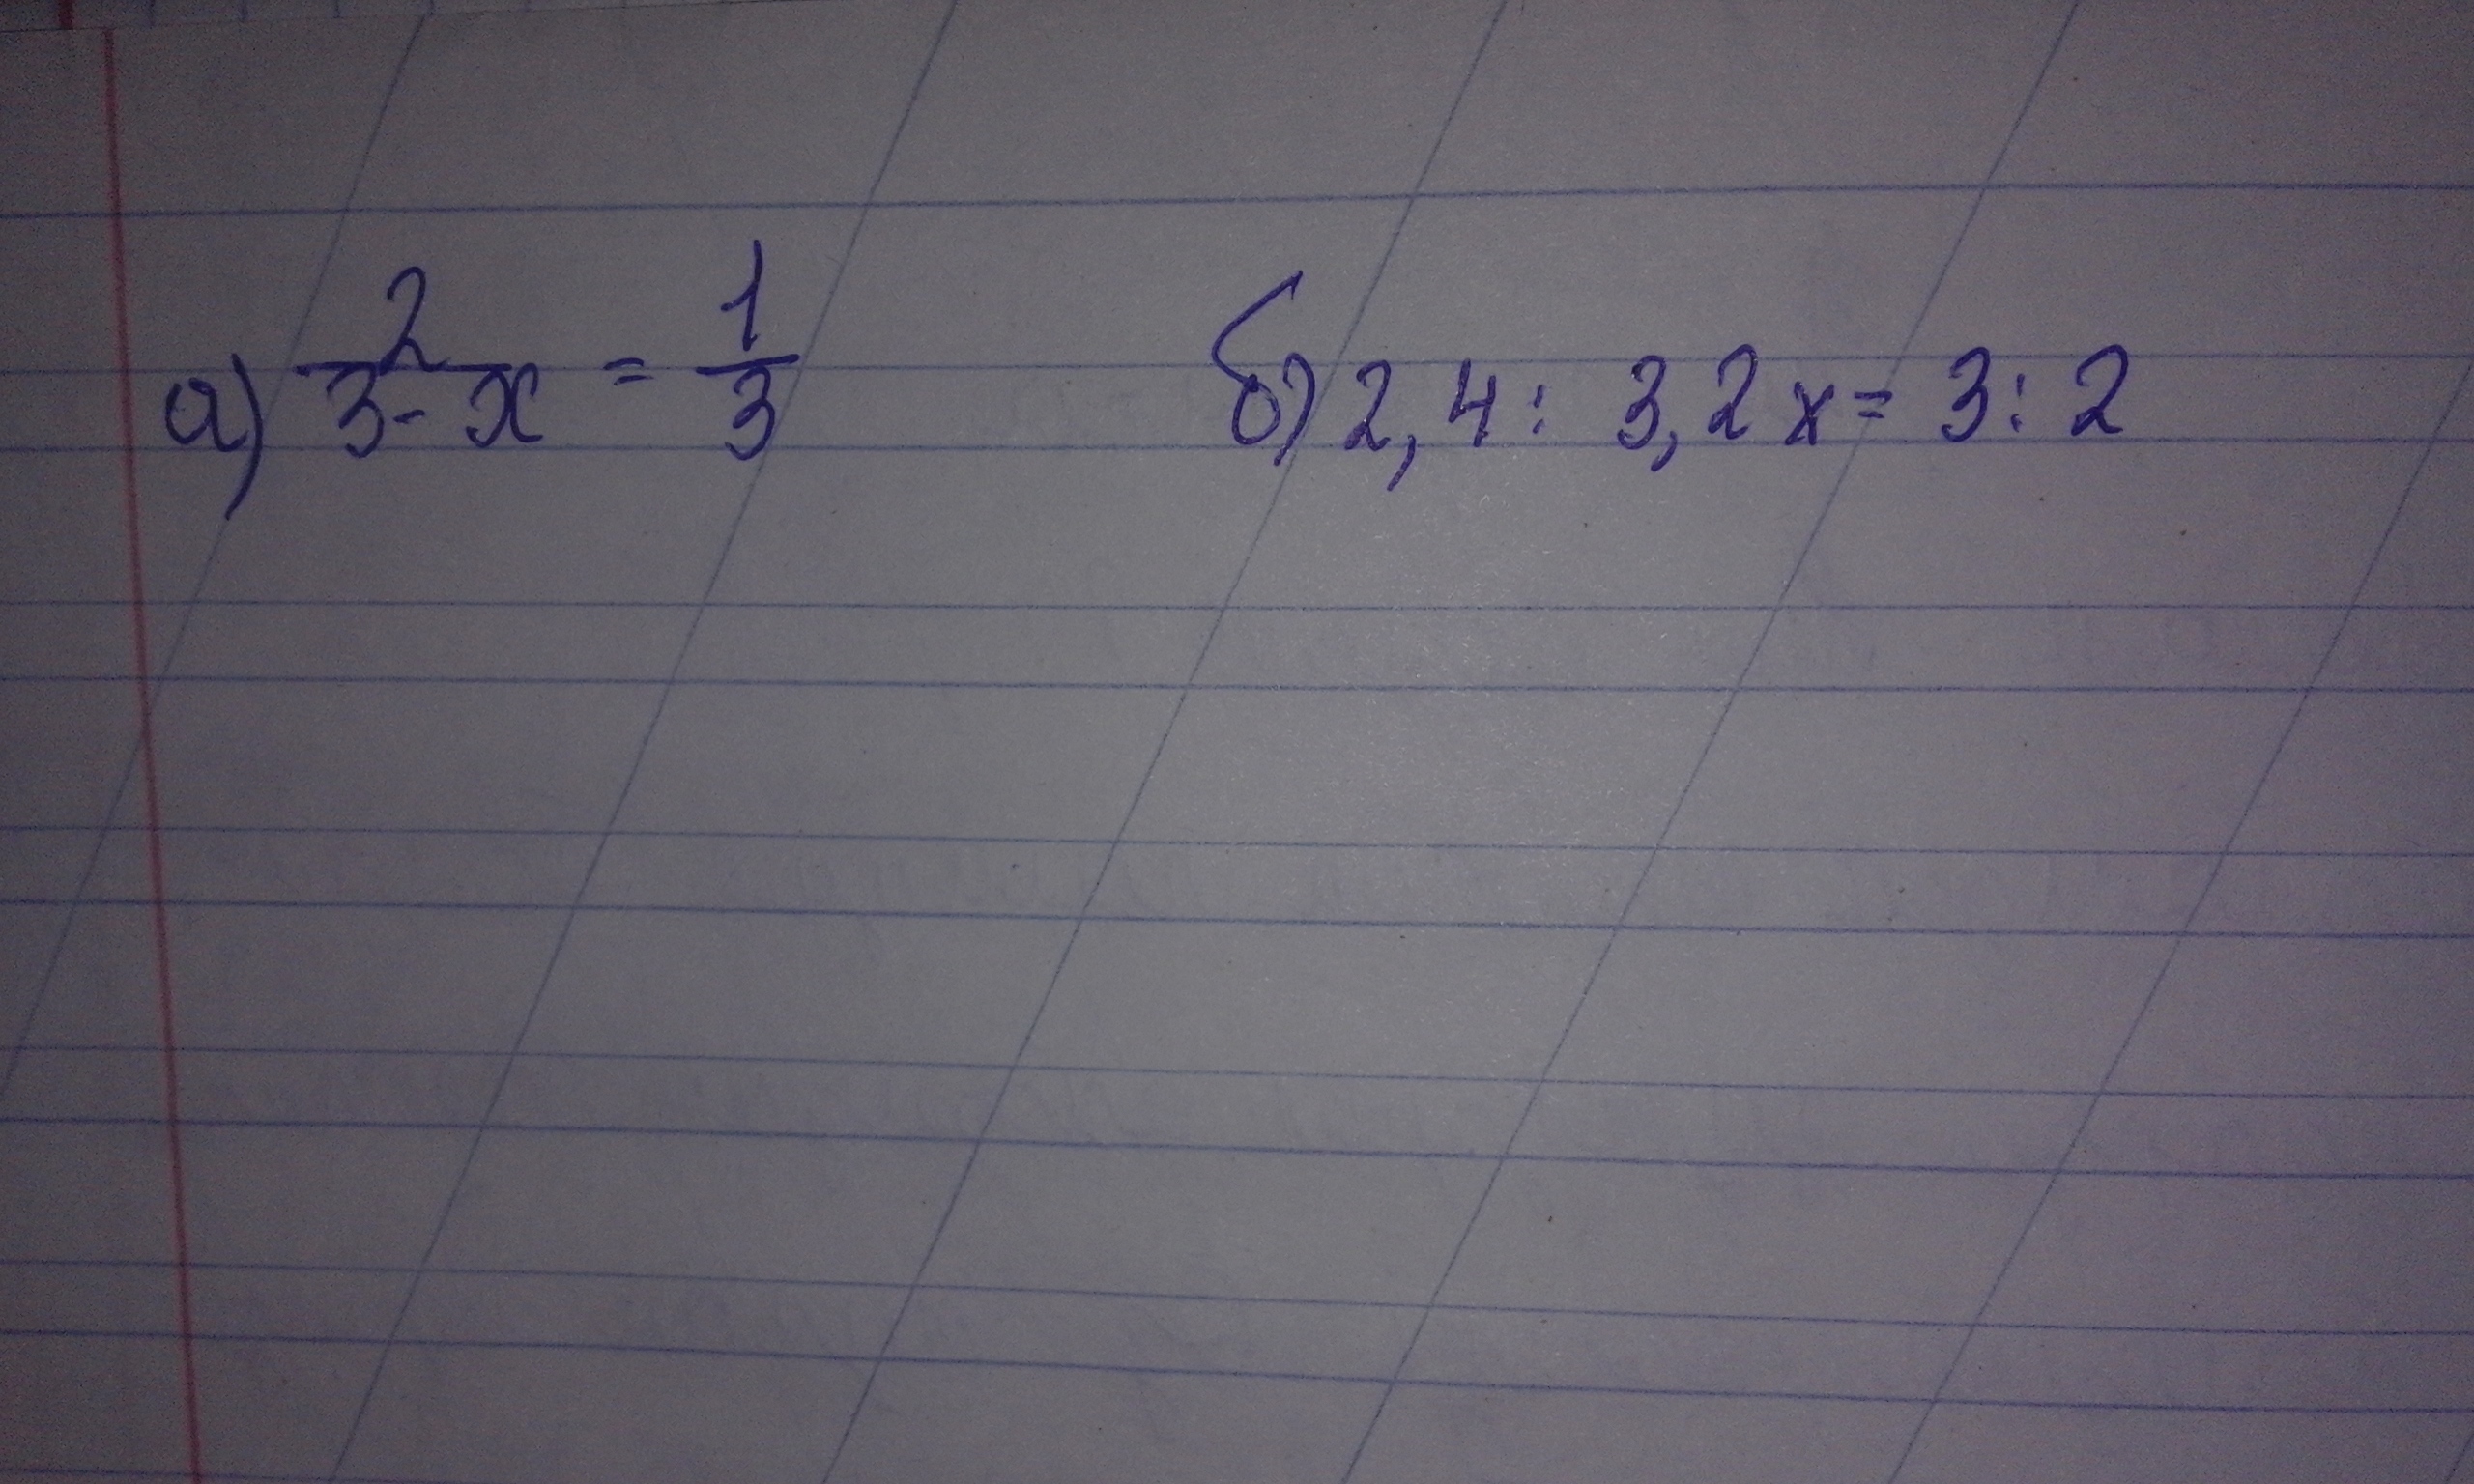 а) 2/(3-x) = 1/3 б) 2,4 : 3,2x = 3 : 2